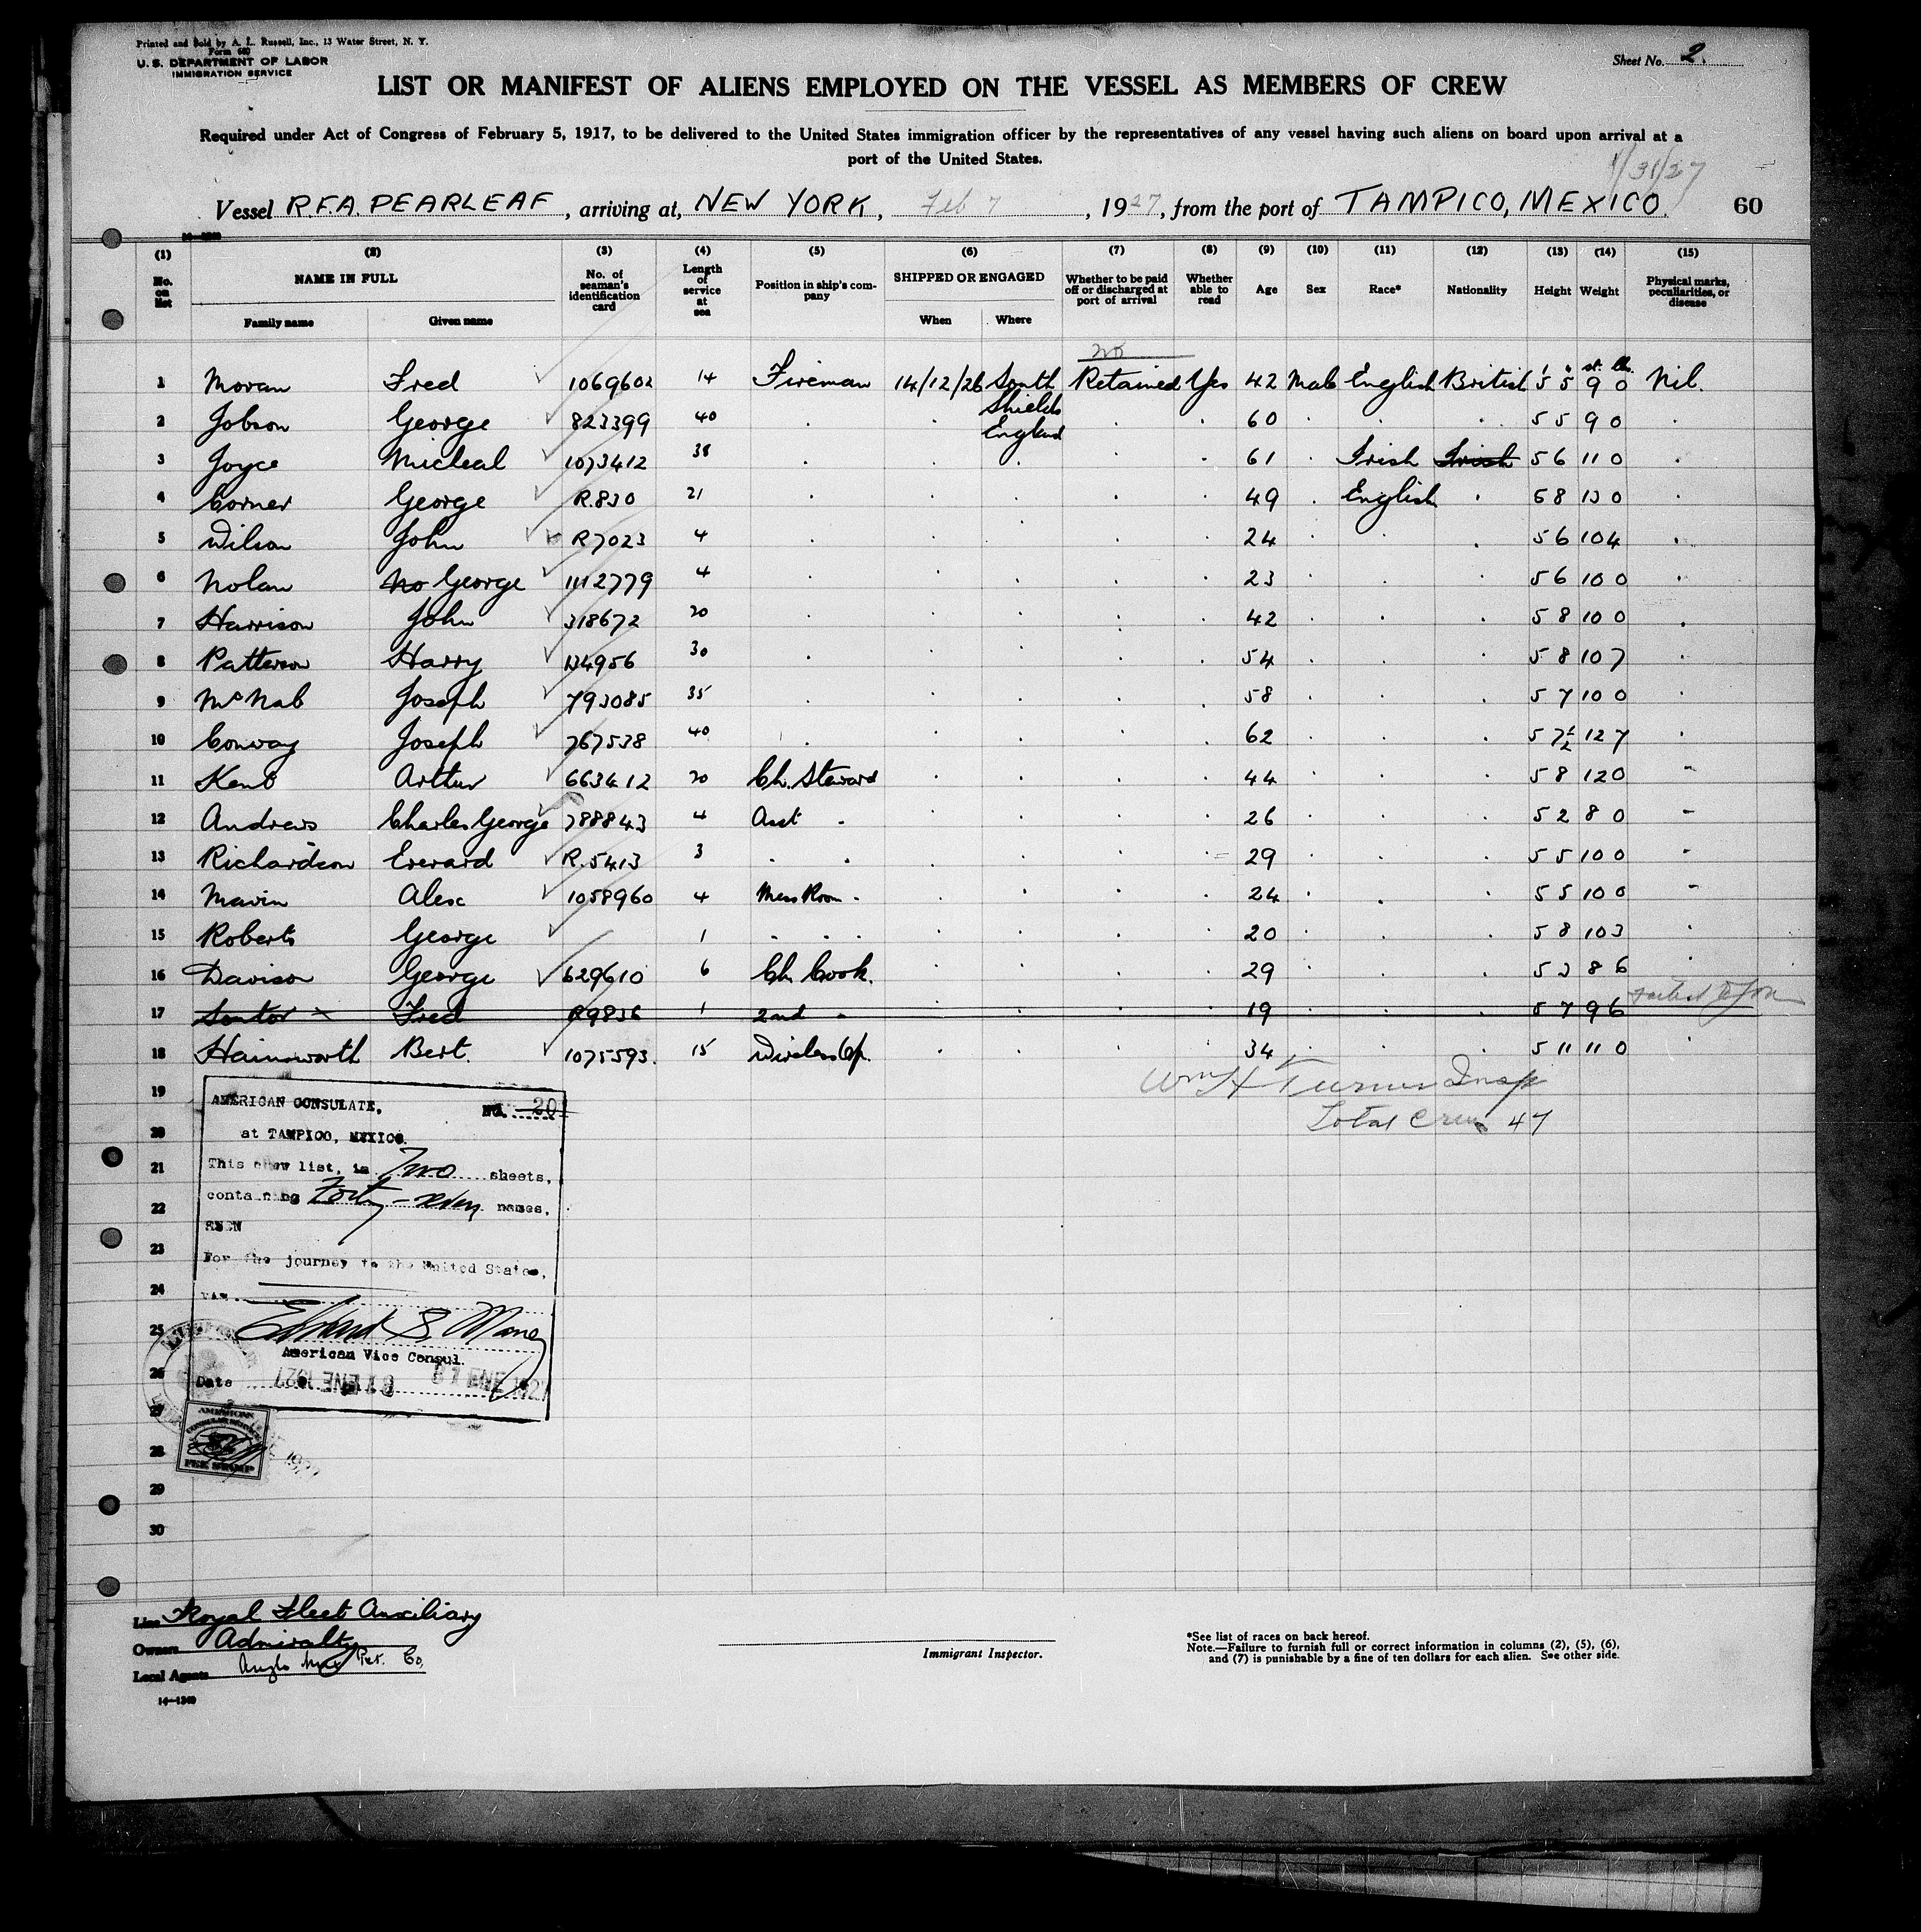 Printed and Sold by A. L. Russell, Inc., 13 Water Street, N. Y.
Form 680
U. S. DEPARTMENT OF LABOR
IMMIGRATION SERVICE
Sheet No. 2.
LIST OR MANIFEST OF ALIENS EMPLOYED ON THE VESSEL AS MEMBERS OF CREW
Required under Act of Congress of February 5, 1917, to be delivered to the United States immigration officer by the representatives of any vessel having such aliens on board upon arrival at a
port of the United States.
1/31/27
Vessel R.F.A. PEARLEAF, arriving at, NEW YORK, Feb 7, 1927, from the port of TAMPICO, MEXICO. 60
(1) (2) (3) (4) (5) (6) (7) (8) (9) (10) (11) (12) (13) (14) (15)
No. on list NAME IN FULL No. of seaman's identification card Length of service at sea Position in ship's company SHIPPED OR ENGAGED Whether to be paid off or discharged at port of arrival Whether able to read Age Sex Race* Nationality Height Weight Physical marks, peculiarities, or disease
Family name Given name When Where
no
st. lbs.
1 Moran Fred 1069602 14 Fireman 14/12/26 South Shields England Retained Yes 42 Male English British 5 5 9 0 Nil.
2 Jobson George 823399 40 . . . . 60 . . . 5 5 9 0 .
3 Joyce Micheal 1073412 38 . . . . . 61 . Irish Irish 5 6 11 0 .
4 Corner George R.830 21 . . . . . 49 . English . 5 8 13 0 .
5 Wilson John R7023 4 . . . . . 24 . . . 5 6 10 4 .
6 Nolan No George 1112779 4 . . . . . 23 . . . 5 6 10 0 .
7 Harrison John 318672 20 . . . . . 42 . . . 5 8 10 0 .
8 Patterson Harry 134956 30 . . . . . 54 . . . 5 8 10 7 .
9 McNab Joseph 793085 35 . . . . . 58 . . . 5 7 10 0 .
10 Conway Joseph 767538 40 . . . . . 62 . . . 5 7½ 12 7 .
11 Kent Arthur 663412 20 Ch. Steward . . . . 44 . . . 5 8 12 0 -
12 Andrews Charles George 788843 4 Asst - . . . . 26 . . . 5 2 8 0 -
13 Richardson Everard R.5413 3 . . . . . . 29 . . . 5 5 10 0 -
14 Mavin Alex 1058960 4 Mess Room - . . . . 24 . . . 5 5 10 0 -
15 Roberts George 1 . . . . . . . 20 . . . 5 8 10 3 .
16 Davison George 629610 6 Ch. Cook. . . . . 29 . . . 5 3 8 6 .
17 Fred R9836 1 2nd - . . . . 19 . . . 5 7 9 6 failed to join
18 Hainsworth Bert. 1075593. 15 Wireless Op. . . . . 34 . . . 5 11 11 0 .
Wm H Turner Insp
Total Crew 47
19
20
21
22
23
24
25
26
27
28
29
30
AMERICAN CONSULATE, NO. 20
at TAMPICO, MEXICO.
This crew list, in Two sheets,
containing Forty-seven names,
SEEN
For the journey to the United States,
Edward S. Maney
American Vice Consul.
Date ENE 1927
AMERICAN
FEE STAMP
Line Royal Fleet Auxiliary
Owners Admiralty
Local Agents Anglo Mex Pet. Co,
14—1240
Immigrant Inspector.
*See list of races on back hereof.
Note.—Failure to furnish full or correct information in columns (2), (5), (6),
and (7) is punishable by a fine of ten dollars for each alien. See other side.